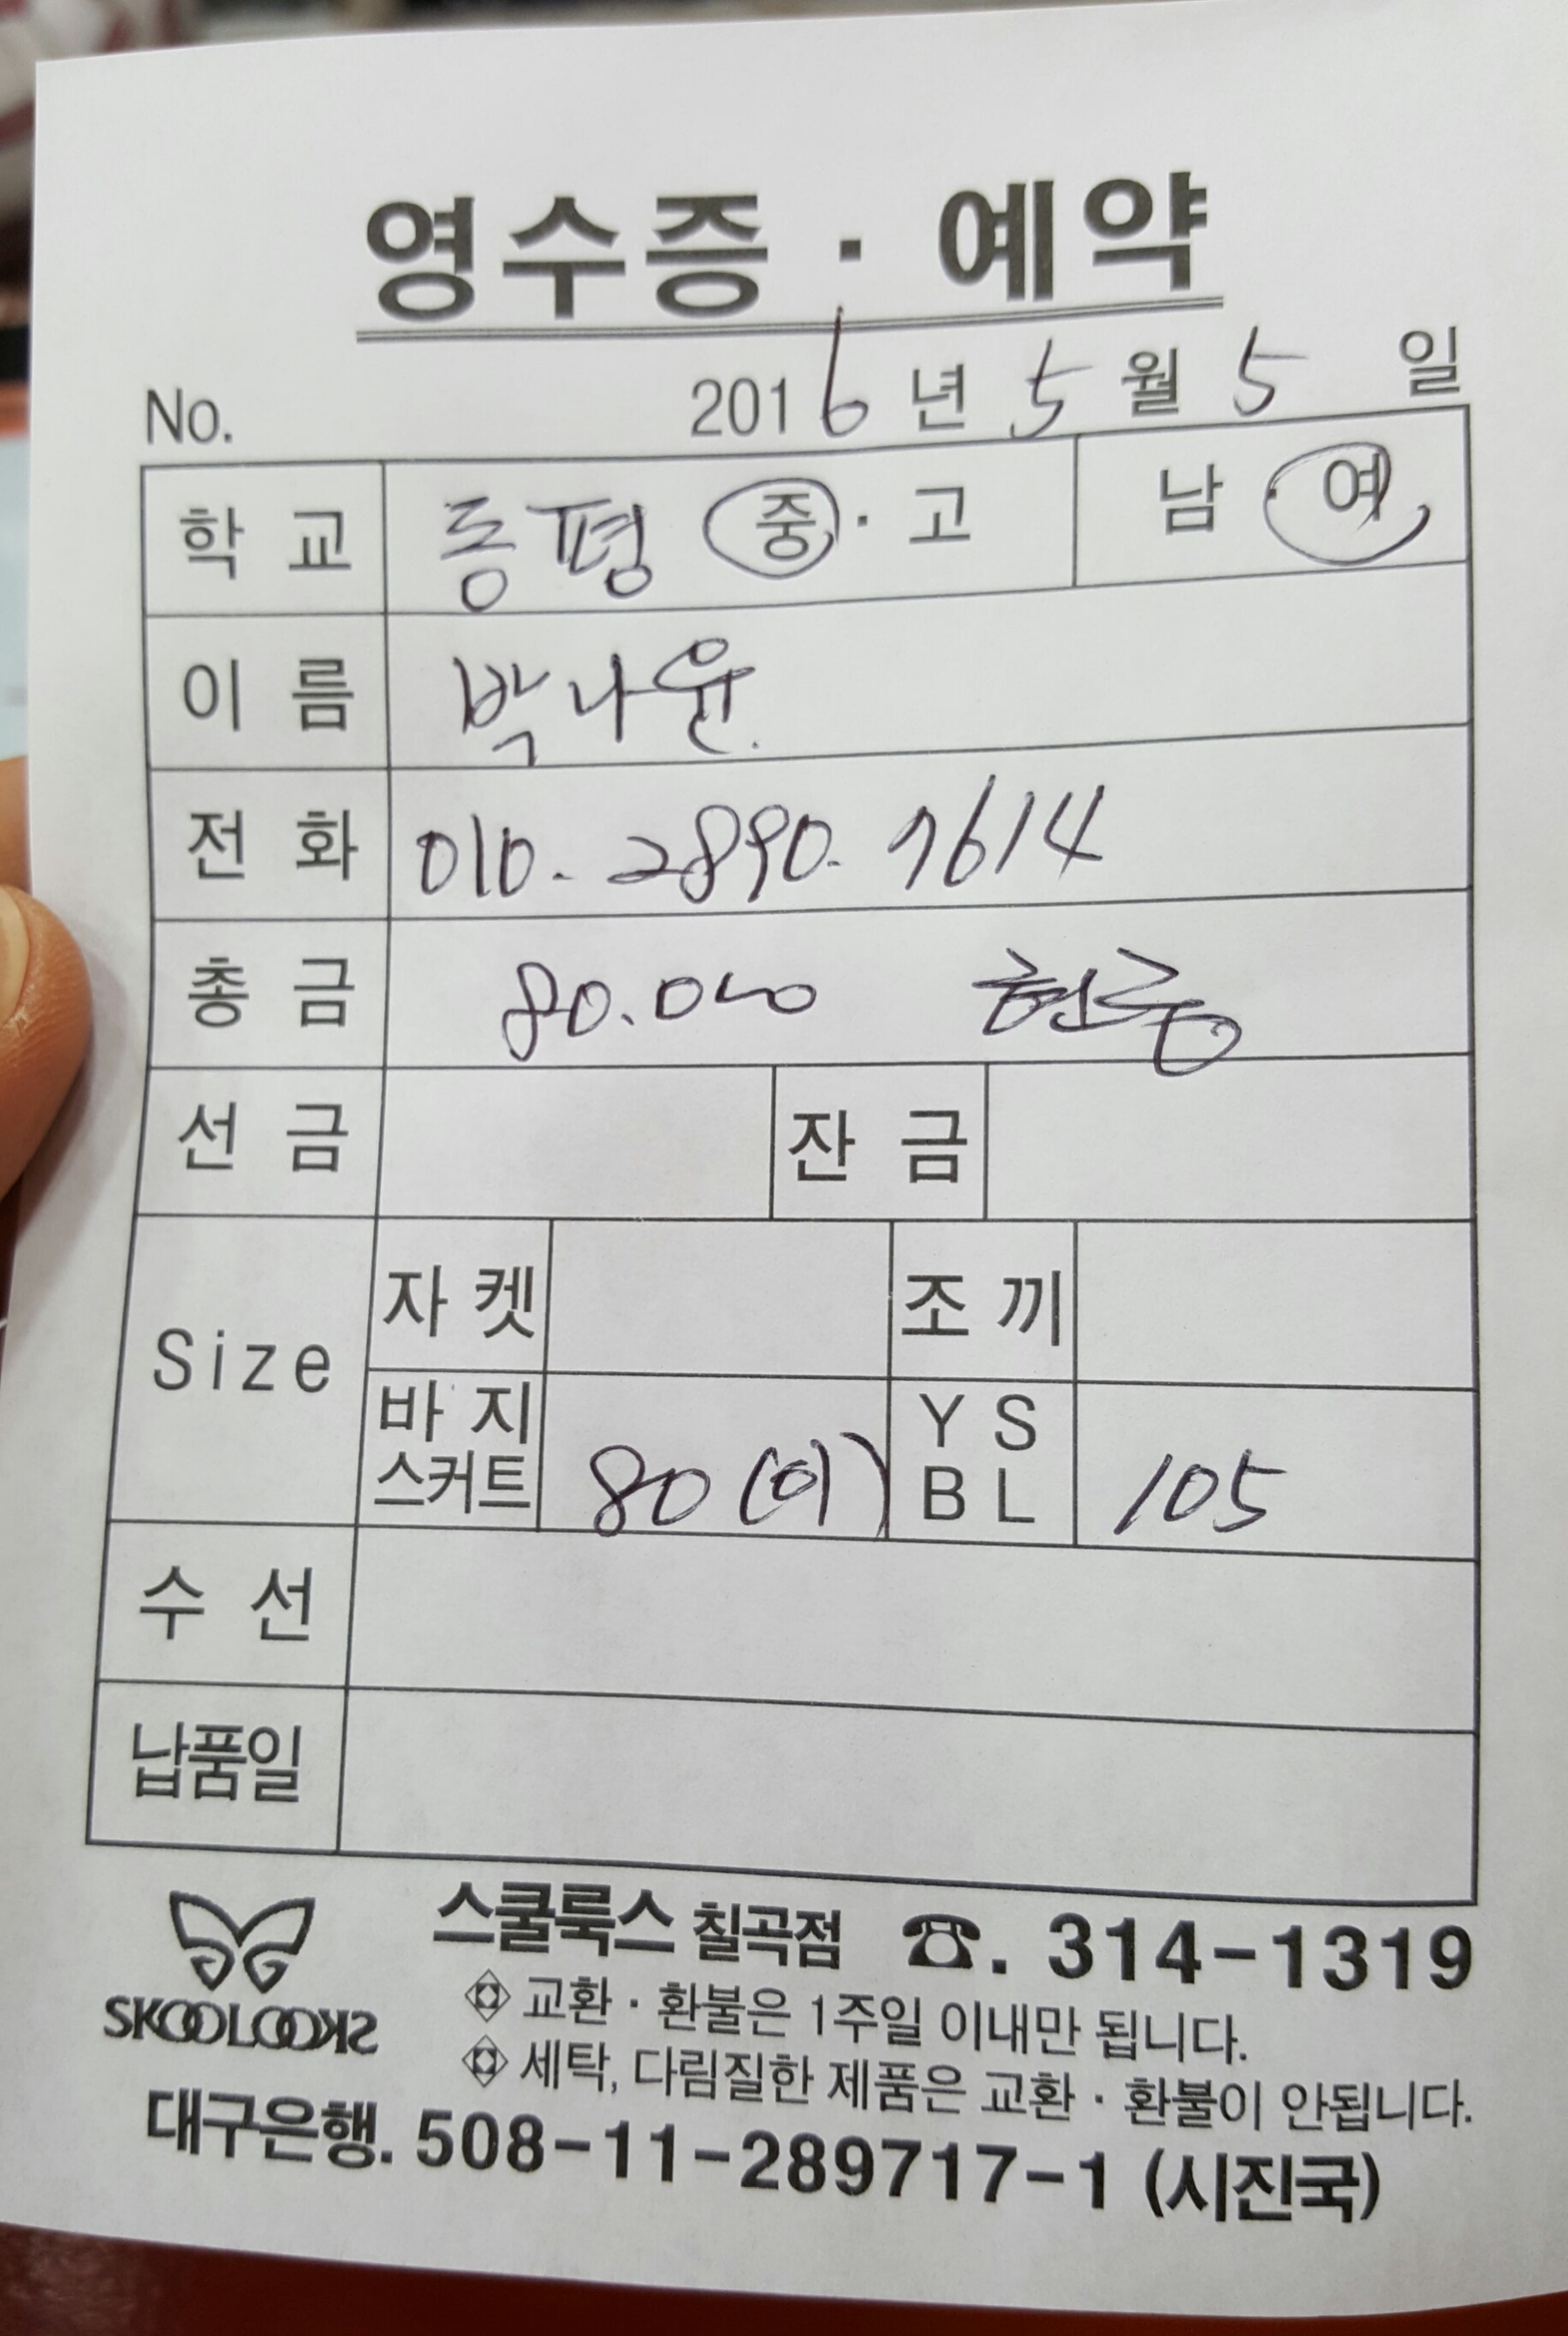 영수증 · 예약
No. 2016 년 5 월 5 일
학 교 동평 중 · 고 남 · 여
이 름 박나윤
전 화 010. 2890. 7614
총 금 80.000
선 금 잔 금
Size 자 켓 조 끼
바 지 스커트 80 (이) Y S B L 105
수 선
납품일
SKOOLOOKS 스쿨룩스 칠곡점 ☎. 314-1319
교환 · 환불은 1주일 이내만 됩니다.
세탁, 다림질한 제품은 교환 · 환불이 안됩니다.
대구은행. 508-11-289717-1 (시진국)